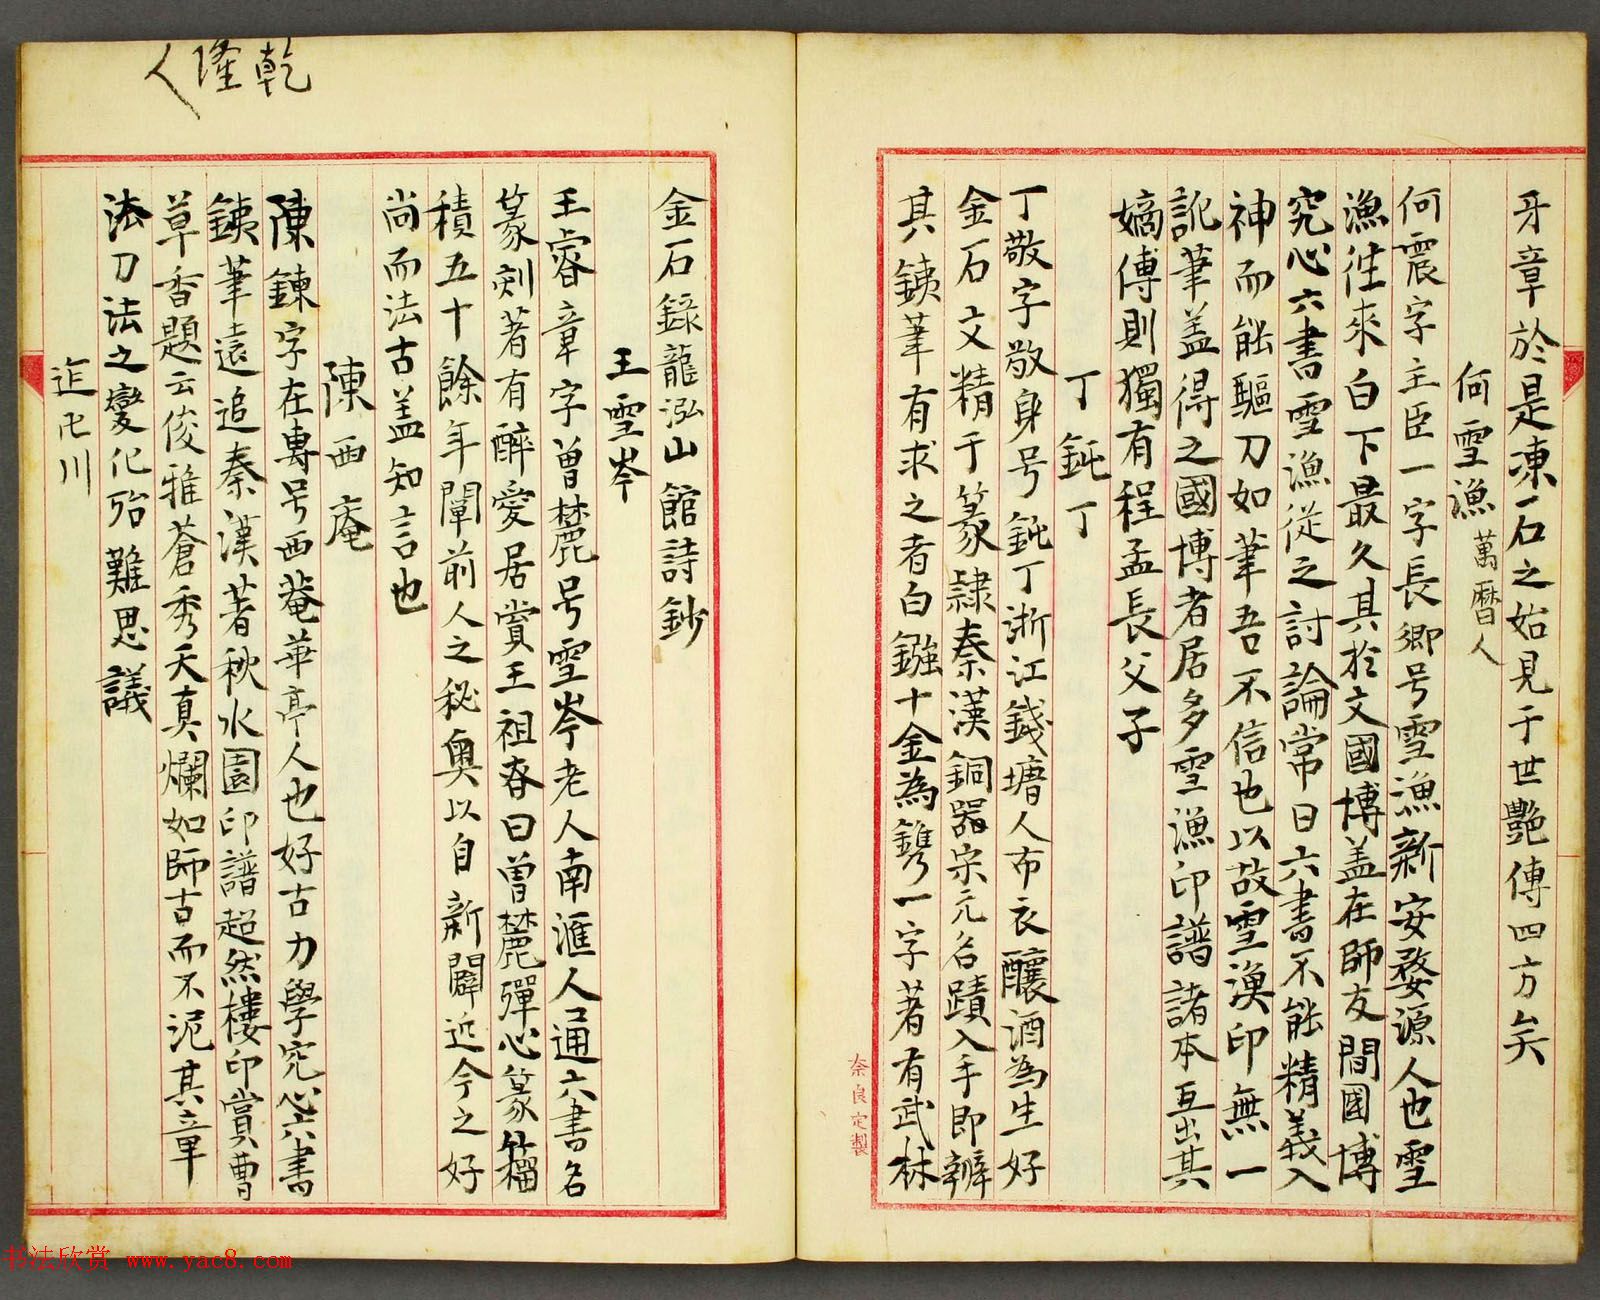 牙章於是凍石之始見于世艷傳四方矣
何雪漁 萬曆人
何震字主臣一字長卿号雪漁新安婺源人也雪
漁往來白下最久其於文國博盖在師友間國博
究心六書雪漁從之討論常日六書不能精義入
神而能驅刀如筆吾不信也以故雪漁印無一
訛筆盖得之國博者居多雪漁印譜諸本互出其
嫡傳則獨有程孟長父子
丁鈍丁
丁敬字敬身号鈍丁浙江錢塘人布衣釀酒為生好
金石文精于篆隷秦漢銅器宋元名蹟入手即辨
其銕筆有求之者白鏹十金為鐫一字著有武林
奈良定製
金石録龍泓山館詩鈔
王雪岑
王睿章字曾麓号雪岑老人南滙人通六書名
篆刻著有醉愛居賞王祖眘曰曾麓殫心篆籀
積五十餘年闡前人之秘奥以自新闢近今之好
尚而法古盖知言也
陳西庵
陳鍊字在專号西菴華亭人也好古力學究心六書
銕筆遠追秦漢著秋水園印譜超然樓印賞曹
草香題云俊雅蒼秀天真爛如師古而不泥其章
法刀法之變化殆難思議
迮卍川
乾隆人
书法欣赏 www.yac8.com